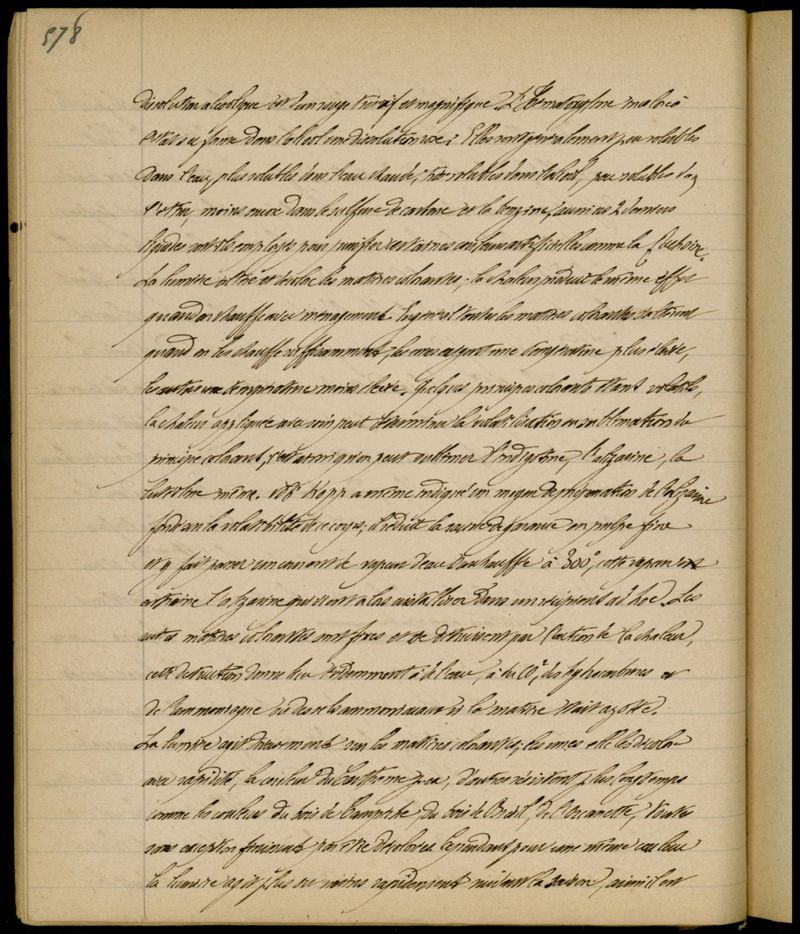 578
dissolution alcoolique est d'un rouge très vif et magnifique. L'hématoxyline
dans l'alcool une dissolution . Elles sont généralement peu solubles
dans l'eau, plus solubles dans l'eau chaude, très solubles dans l'alcool, peu solubles dans
l'éther, moins encore dans le sulfure de carbone et la benzine, ces 2 derniers
liquides sont employés pour purifier certaines artificielles comme la fuchsine.
La lumière altère et décolore les matières colorantes, la chaleur produit le même effet
quand on chauffe avec ménagement. En général toutes les matières colorantes s'altèrent
quand on les chauffe suffisamment, les unes exigent une température plus élevée,
les autres une température moins élevée. Quelques principes colorants étant volatils,
la chaleur appliquée avec soin peut déterminer la volatilisation ou sublimation du
principe colorant, c'est ainsi qu'on peut sublimer l'indigotine, l'alizarine, la
lutéoline même. Mr Kopp a même indiqué un moyen de préparation de l'alizarine
fondé sur la volatilité de ce corps; il réduit la racine de garance en poudre fine
et y fait passer un courant de vapeur d'eau surchauffée à 300°, cette vapeur
entraîne l'alizarine qui vient se cristalliser dans un récipient ad hoc. Les
autres matières colorantes sont fixes et se détruisent par l'action de la chaleur,
cette destruction donne lieu évidemment à de l'eau, à du CO², des hydrocarbures et
de l'ammoniaque ou des sels ammoniacaux si la matière était azotée.
La lumière agit diversement sur les matières colorantes; les unes elle les décolore
avec rapidité, la couleur du carthame p. ex., d'autres résistent plus longtemps
comme les couleurs du bois de Campêche, du bois de Brésil, de l'orcanette, toutes
sans exception finissent par être décolorées. Cependant pour une même couleur
la lumière agit plus ou moins rapidement suivant la saison, ainsi il est